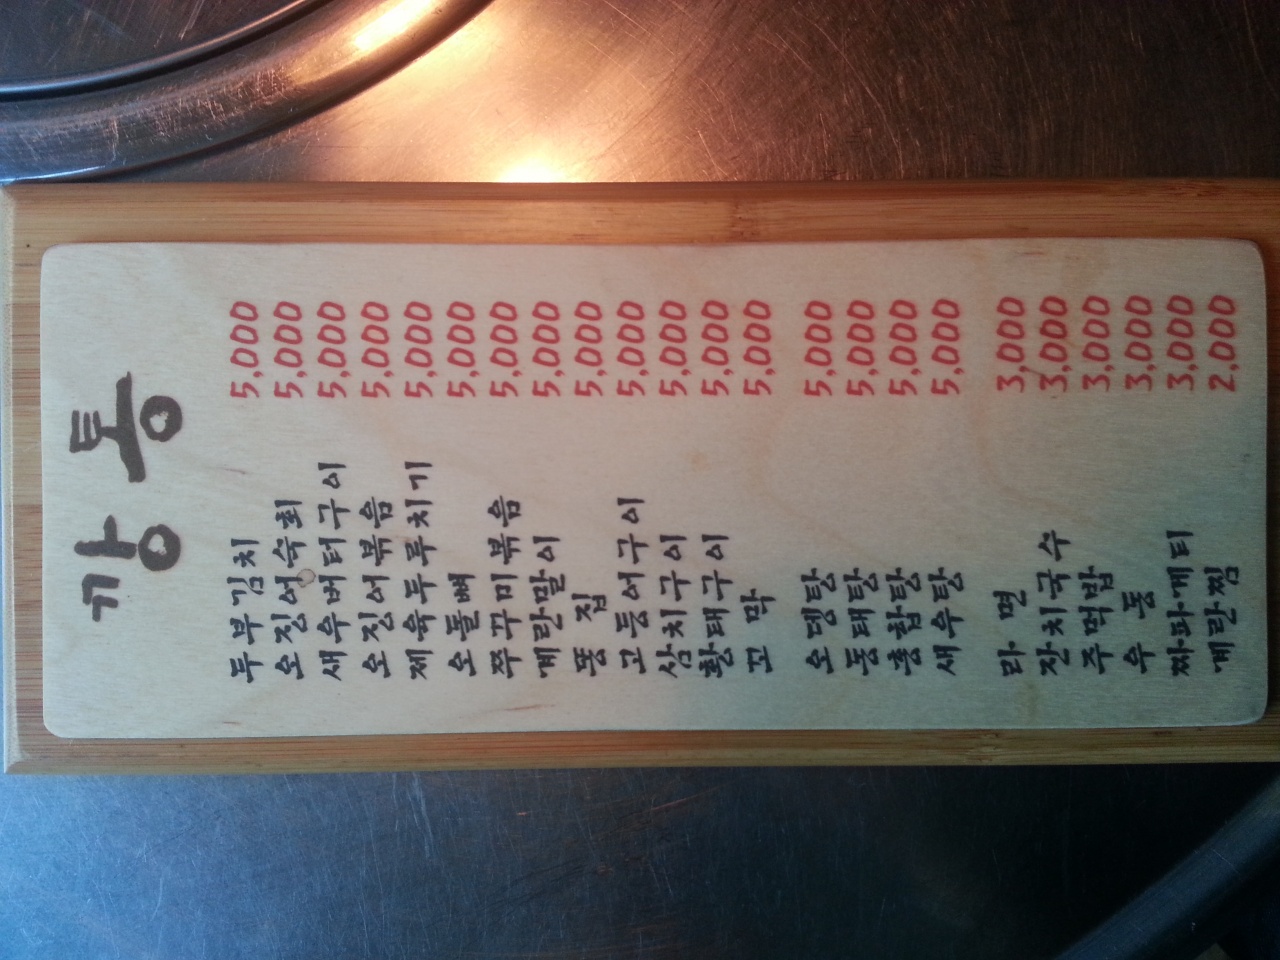 깡통
두부김치 5,000
오징어숙회 5,000
새우버터구이 5,000
오징어볶음 5,000
제육두루치기 5,000
오돌뼈 5,000
쭈꾸미볶음 5,000
계란말이 5,000
똥집 5,000
고등어구이 5,000
삼치구이 5,000
황태구이 5,000
꼬막 5,000
오뎅탕 5,000
동태탕 5,000
홍합탕 5,000
새우탕 5,000
라면 3,000
잔치국수 3,000
주먹밥 3,000
우동 3,000
짜파게티 3,000
계란찜 2,000